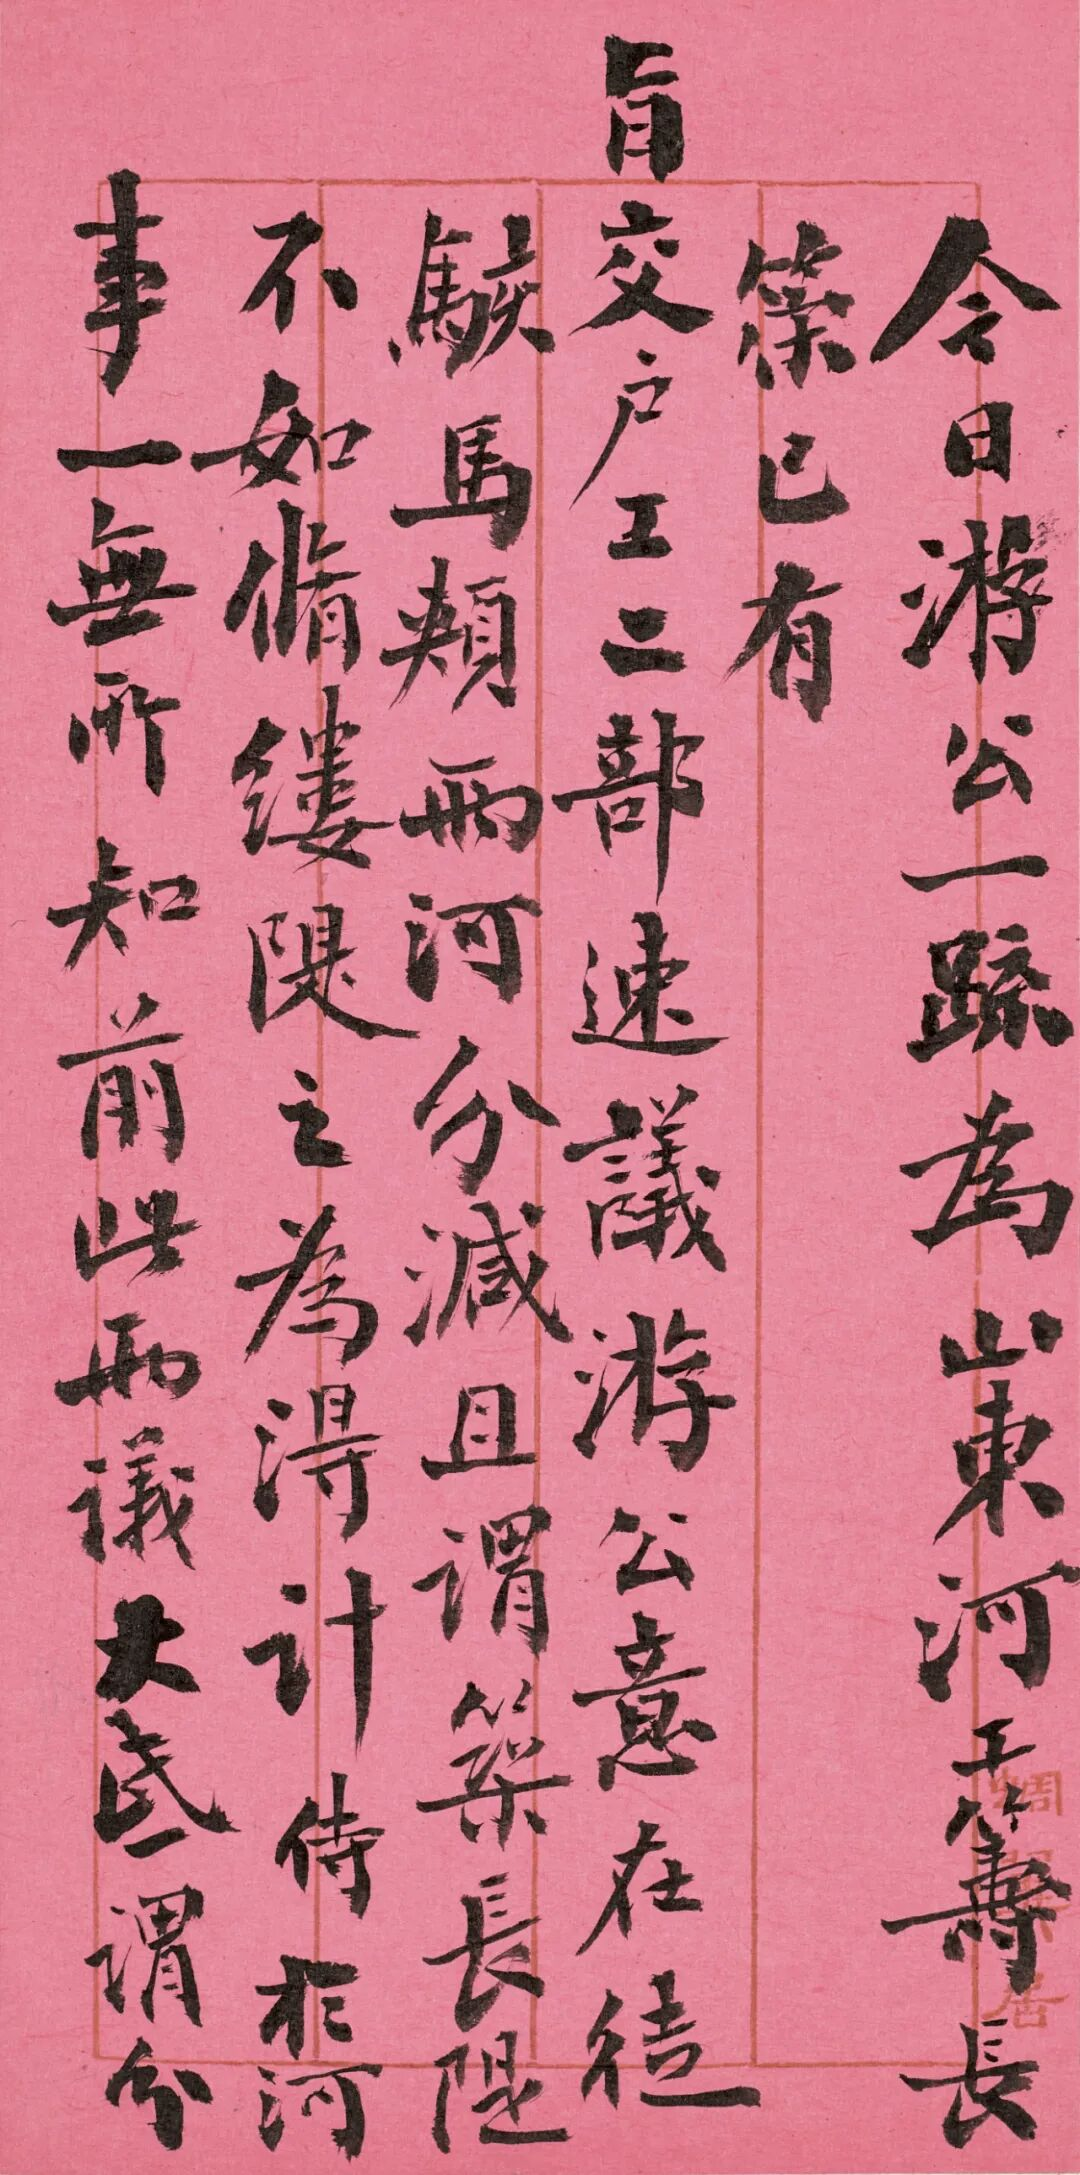 今日游公一疏為山東河工籌長
策已有
旨交戶工二部速議游公意在徒
駭馬頰兩河分減且謂築長隄
不如脩縷隄之為得計侍於河
事一無所知前此兩議大謂分